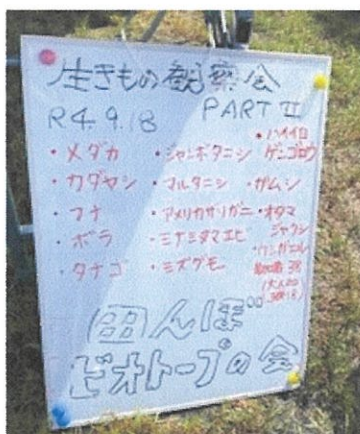 生きもの観察会
R4.9.18 PART II
・メダカ
・カダヤシ
・フナ
・ボラ
・タナゴ
・ジャンボタニシ
・マルタニシ
・アメリカザリガニ
・ミナミヌマエビ
・ミズグモ
・ハイイロ
ゲンゴロウ
・ガムシ
・オタマ
ジャクシ
田んぼ
ビオトープの会